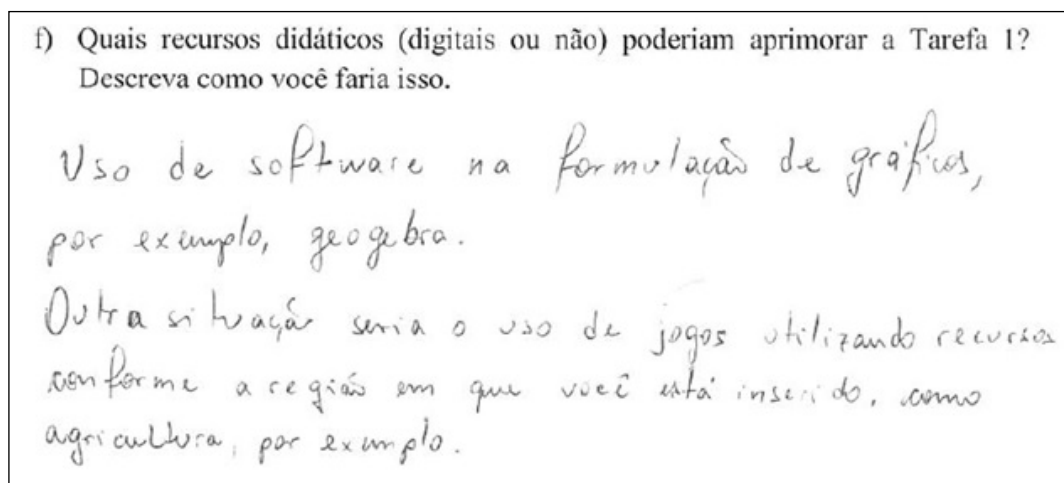 f) Quais recursos didáticos (digitais ou não) poderiam aprimorar a Tarefa 1?
Descreva como você faria isso.
Uso de software na formulação de gráficos,
por exemplo, geogebra.
Outra situação seria o uso de jogos utilizando recursos
conforme a região em que você está inserido, como
agricultura, por exemplo.